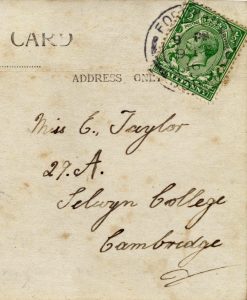 CARD
ADDRESS ONLY
Miss C, Taylor
27. A.
Selwyn College
Cambridge